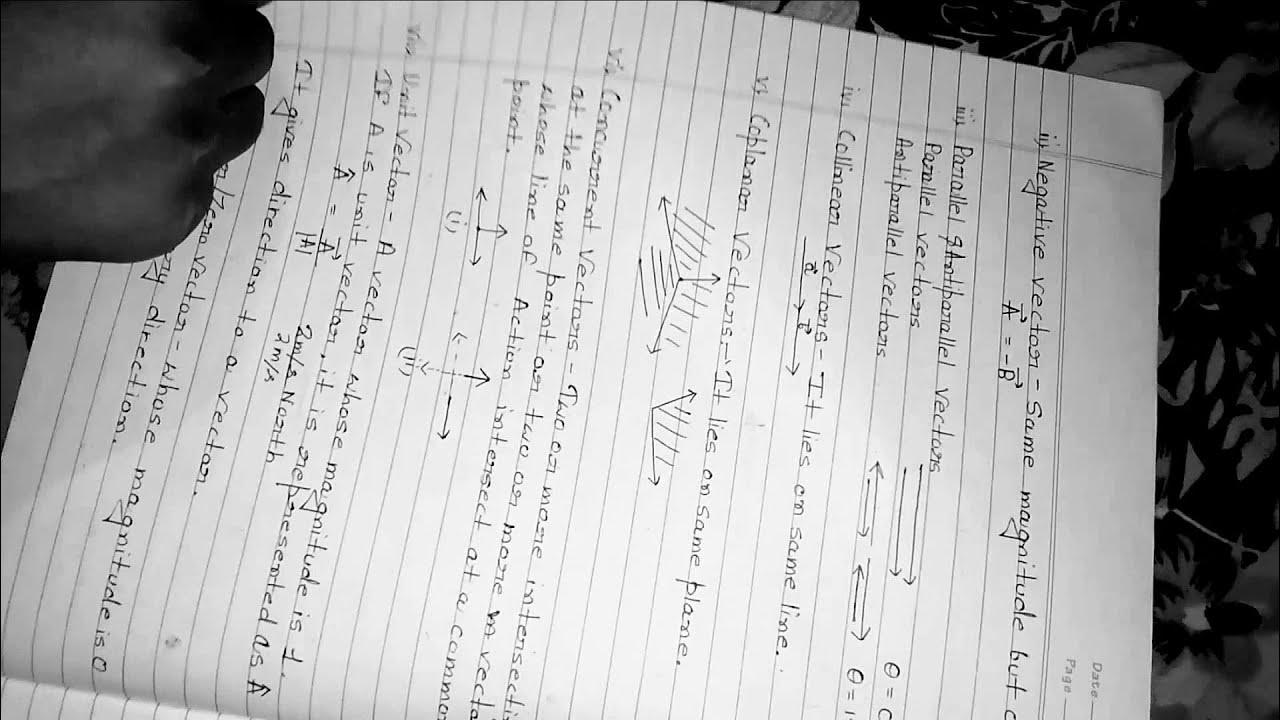 Date
Page
ii) Negative vector - Same magnitude but
A⃗ = -B⃗
iii) Parallel & Antiparallel vectors
Parallel vectors θ =
Antiparallel vectors θ =
iv) Collinear vectors - It lies on same line.
a⃗ b⃗
v) Coplanar vectors - It lies on same plane.
vi) Concurrent vectors - Two or more
at the same point or two or more
whose line of Action intersect at a
point.
(i) (ii)
vii) Unit vector - A vector whose magnitude is 1.
If A is unit vector, it is represented as Â
Â = A⃗ / |A| 2m/s North
2m/s
It gives direction to a vector.
/Zero vector - whose magnitude is 0
direction.